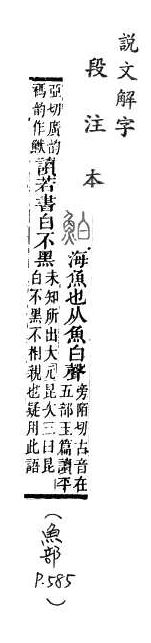 說文解字
段注本
鮊
海魚也从魚白聲旁陌切古音在五部玉篇讀平
亞切廣韵禡韵作鮁讀若書白不黑未知所出大元昆次三曰昆白不黑不相親也疑用此語
(魚部 P.585)